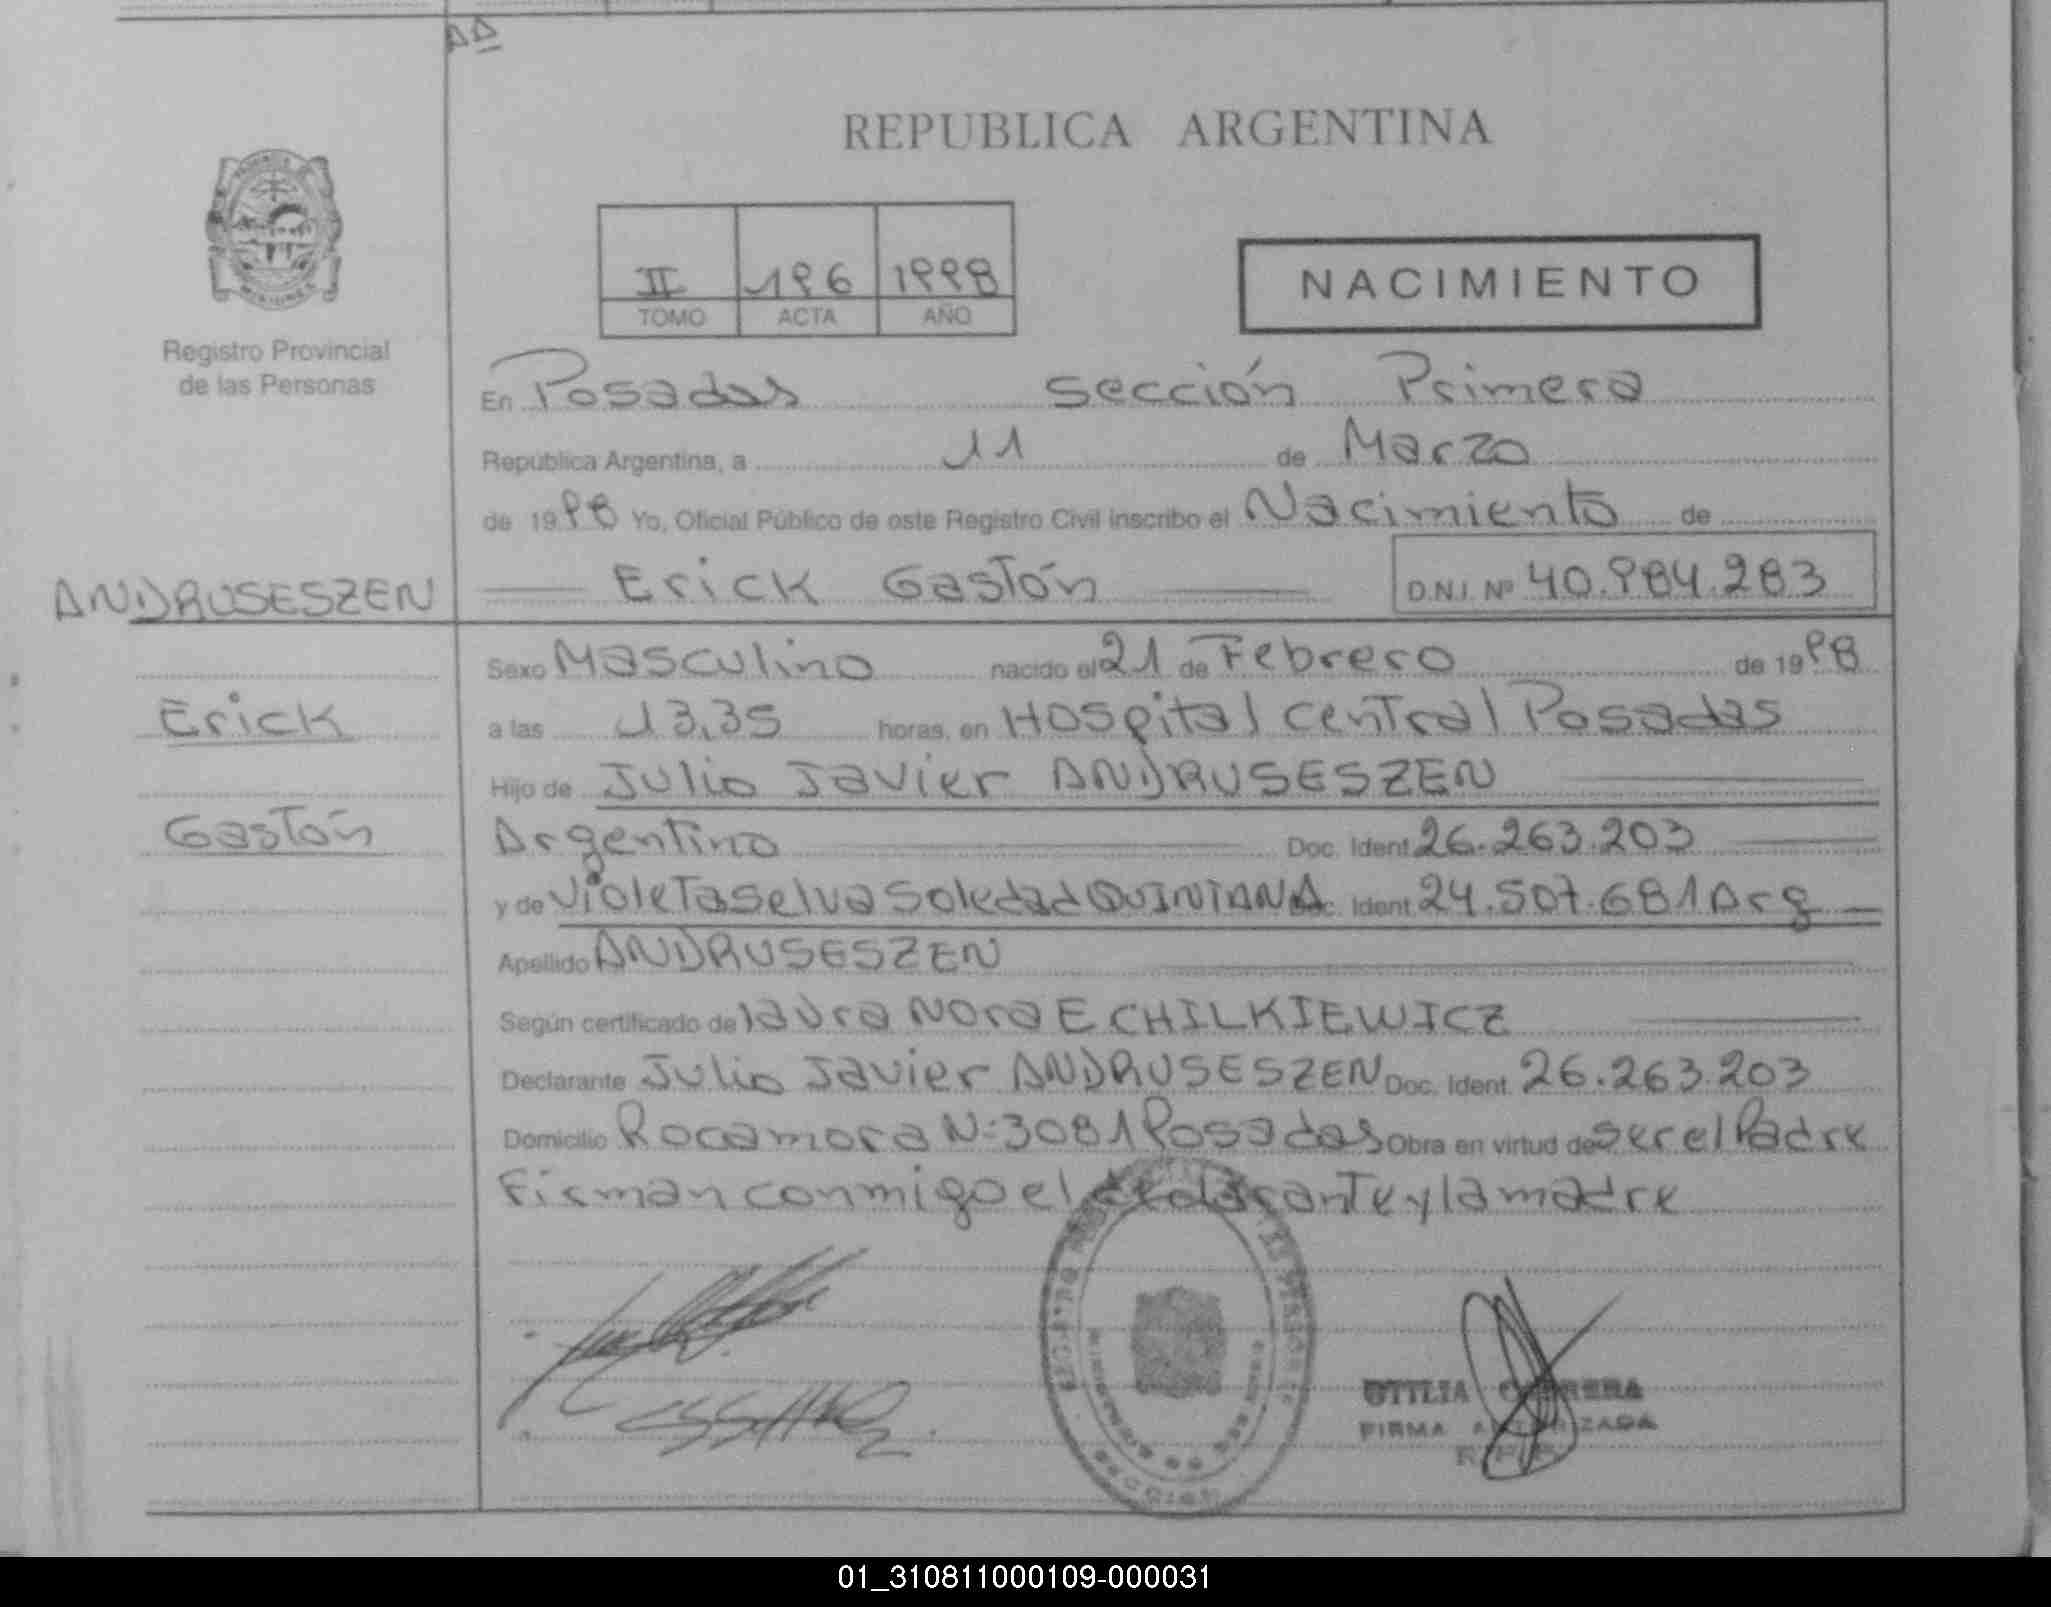 REPUBLICA ARGENTINA
II 196 1998
TOMO ACTA AÑO
NACIMIENTO
Registro Provincial
de las Personas
ANDRUSESZEN
Erick
Gastón
En Posadas Sección Primera
República Argentina, a 11 de Marzo
de 1998 Yo, Oficial Público de este Registro Civil inscribo el Nacimiento de
Erick Gastón D.N.I. Nº 40.984.283
Sexo Masculino nacido el 21 de Febrero de 1998
a las 13,35 horas, en Hospital Central Posadas
Hijo de Julio Javier ANDRUSESZEN
Argentino Doc. Ident 26.263.203
y de Violeta Selva Soledad QUINTANA Doc. Ident 24.507.681 Arg
Apellido ANDRUSESZEN
Según certificado de laura Nora E CHILKIEWICZ
Declarante Julio Javier ANDRUSESZEN Doc. Ident. 26.263.203
Domicilio Rocamora N: 3081 Posadas Obra en virtud de ser el Padre
Firman conmigo el declarante y la madre
OTILIA CABRERA
FIRMA AUTORIZADA
01_310811000109-000031